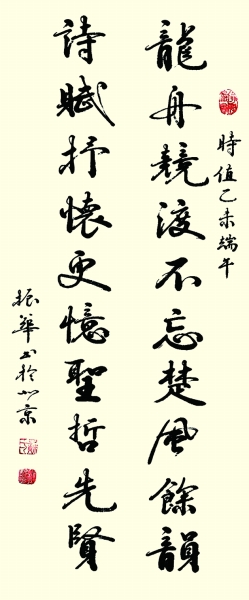 時值乙未端午
龍舟競渡不忘楚風餘韻
詩賦抒懷更憶聖哲先賢
振華書於北京